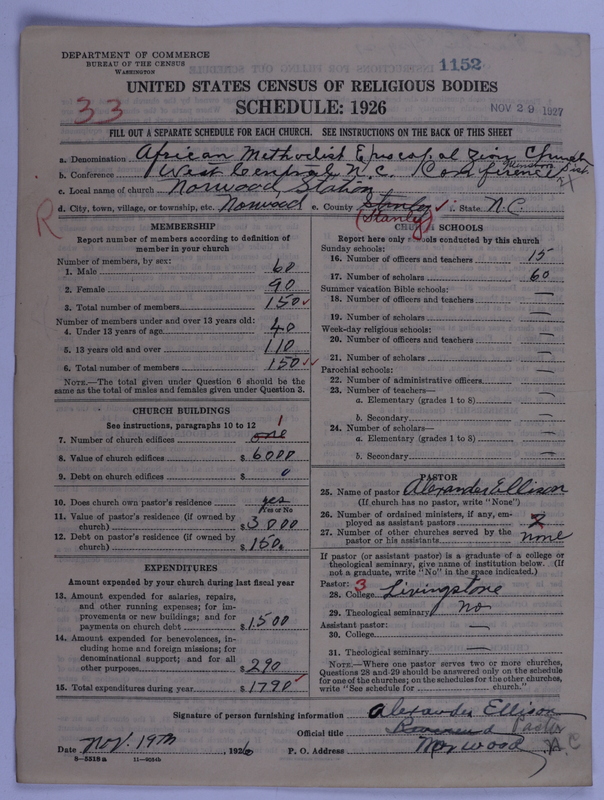 DEPARTMENT OF COMMERCE
BUREAU OF THE CENSUS
WASHINGTON
1152
UNITED STATES CENSUS OF RELIGIOUS BODIES
SCHEDULE: 1926
NOV 29 1927
33
FILL OUT A SEPARATE SCHEDULE FOR EACH CHURCH. SEE INSTRUCTIONS ON THE BACK OF THIS SHEET
a. Denomination African Methodist Episcopal Zion Church
b. Conference West Central N.C. Conference Dist.
c. Local name of church Norwood Station
d. City, town, village, or township, etc. Norwood e. County Stanley f. State N.C.
(Stanly)
R
MEMBERSHIP
Report number of members according to definition of member in your church
Number of members, by sex:
1. Male 60
2. Female 90
3. Total number of members 150
Number of members under and over 13 years old:
4. Under 13 years of age 40
5. 13 years old and over 110
6. Total number of members 150
NOTE.—The total given under Question 6 should be the same as the total of males and females given under Question 3.
CHURCH BUILDINGS
See instructions, paragraphs 10 to 12
7. Number of church edifices one 1
8. Value of church edifices $ 6000
9. Debt on church edifices $ 0
10. Does church own pastor's residence yes
Yes or No
11. Value of pastor's residence (if owned by church) $ 3000
12. Debt on pastor's residence (if owned by church) $ 150.
EXPENDITURES
Amount expended by your church during last fiscal year
13. Amount expended for salaries, repairs, and other running expenses; for improvements or new buildings; and for payments on church debt $ 1500
14. Amount expended for benevolences, including home and foreign missions; for denominational support; and for all other purposes $ 290
15. Total expenditures during year $ 1790
CHURCH SCHOOLS
Report here only schools conducted by this church
Sunday schools:
16. Number of officers and teachers 15
17. Number of scholars 60
Summer vacation Bible schools:
18. Number of officers and teachers —
19. Number of scholars —
Week-day religious schools:
20. Number of officers and teachers —
21. Number of scholars —
Parochial schools:
22. Number of administrative officers —
23. Number of teachers—
a. Elementary (grades 1 to 8) —
b. Secondary —
24. Number of scholars—
a. Elementary (grades 1 to 8) —
b. Secondary —
PASTOR
25. Name of pastor Alexander Ellison
(If church has no pastor, write "None")
26. Number of ordained ministers, if any, employed as assistant pastors x
27. Number of other churches served by the pastor or his assistants none
If pastor (or assistant pastor) is a graduate of a college or theological seminary, give name of institution below. (If not a graduate, write "No" in the space indicated.)
Pastor: 3
28. College Livingstone
29. Theological seminary no
Assistant pastor: —
30. College
31. Theological seminary —
NOTE.—Where one pastor serves two or more churches, Questions 28 and 29 should be answered only on the schedule for one of the churches; on the schedules for the other churches, write "See schedule for church."
Signature of person furnishing information Alexander Ellison
Official title Reverend Pastor
Date Nov. 19th, 1926 P. O. Address Norwood N.C
8—5318a 11—9084b